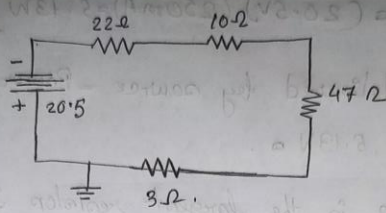 22Ω 10Ω
-
47Ω
+ 20.5
3Ω.